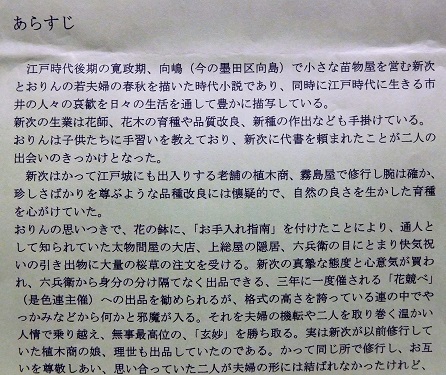 あらすじ
江戸時代後期の寛政期、向嶋（今の墨田区向島）で小さな苗物屋を営む新次
とおりんの若夫婦の春秋を描いた時代小説であり、同時に江戸時代に生きる市
井の人々の哀歓を日々の生活を通して豊かに描写している。
新次の生業は花師、花木の育種や品質改良、新種の作出なども手掛けている。
おりんは子供たちに手習いを教えており、新次に代書を頼まれたことが二人の
出会いのきっかけとなった。
新次はかつて江戸城にも出入りする老舗の植木商、霧島屋で修行し腕は確か、
珍しさばかりを尊ぶような品種改良には懐疑的で、自然の良さを生かした育種
を心がけていた。
おりんの思いつきで、花の鉢に、「お手入れ指南」を付けたことにより、通人
として知られていた太物問屋の大店、上総屋の隠居、六兵衛の目にとまり快気祝
いの引き出物に大量の桜草の注文を受ける。新次の真摯な態度と心意気が買わ
れ、六兵衛から身分の分け隔てなく出品できる、三年に一度催される「花競べ」
（是色連主催）への出品を勧められるが、格式の高さを誇っている連の中でや
っかみなどから何かと邪魔が入る。それを夫婦の機転や二人を取り巻く温かい
人情で乗り越え、無事最高位の、「玄妙」を勝ち取る。実は新次が以前修行して
いた植木商の娘、理世も出品していたのである。かつて同じ所で修行し、お互
いを尊敬しあい、思い合っていた二人が夫婦の形には結ばれなかったけれど、